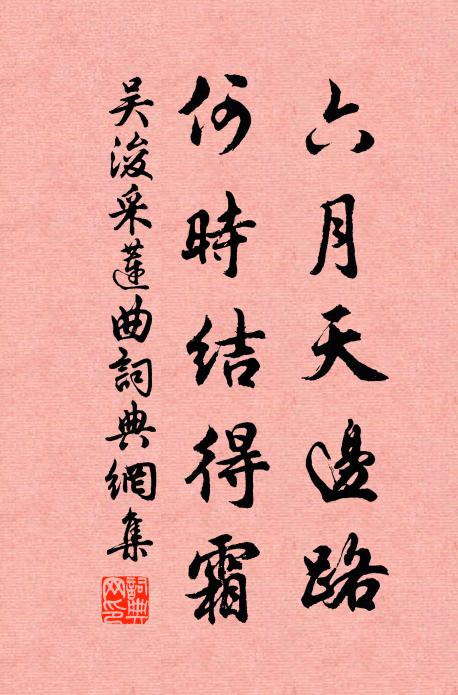 六月天邊路
何時結得霜
吳浚采蓮曲詞典網集
詞典网印